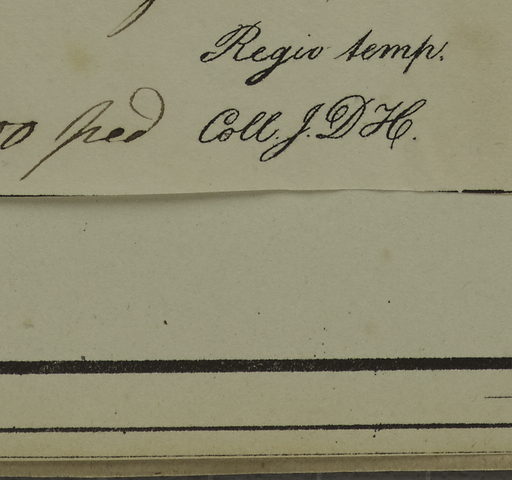 Regio temp.
ped Coll. J. D H.